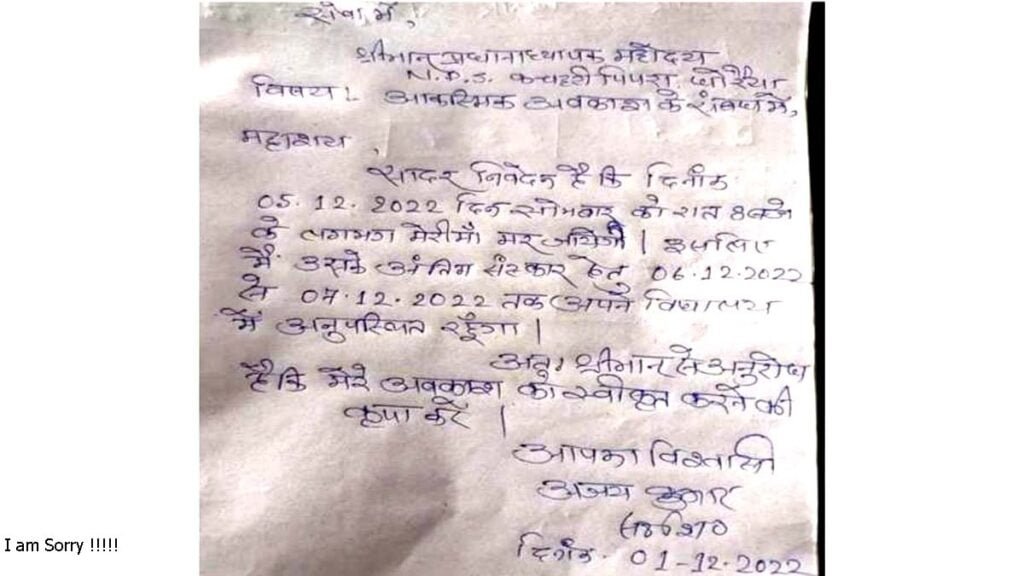 सेवा में,
श्रीमान प्रधानाध्यापक महोदय
N.P.S. कचहरी पिपरा,
विषय:- आकस्मिक अवकाश के संबंध में,
महाशय,
सादर निवेदन है कि दिनांक
05.12.2022 दिन सोमवार को रात 8 बजे
के लगभग मेरी माँ मर जायेगी | इसलिए
मैं उसके अंतिम संस्कार हेतु 06.12.2022
से 07.12.2022 तक अपने विद्यालय
में अनुपस्थित रहूँगा |
अतः श्रीमान से अनुरोध
है कि मेरे अवकाश को स्वीकृत करने की
कृपा करें |
आपका विश्वासी
अजय कुमार
दिनांक. 01-12.2022
I am Sorry !!!!!